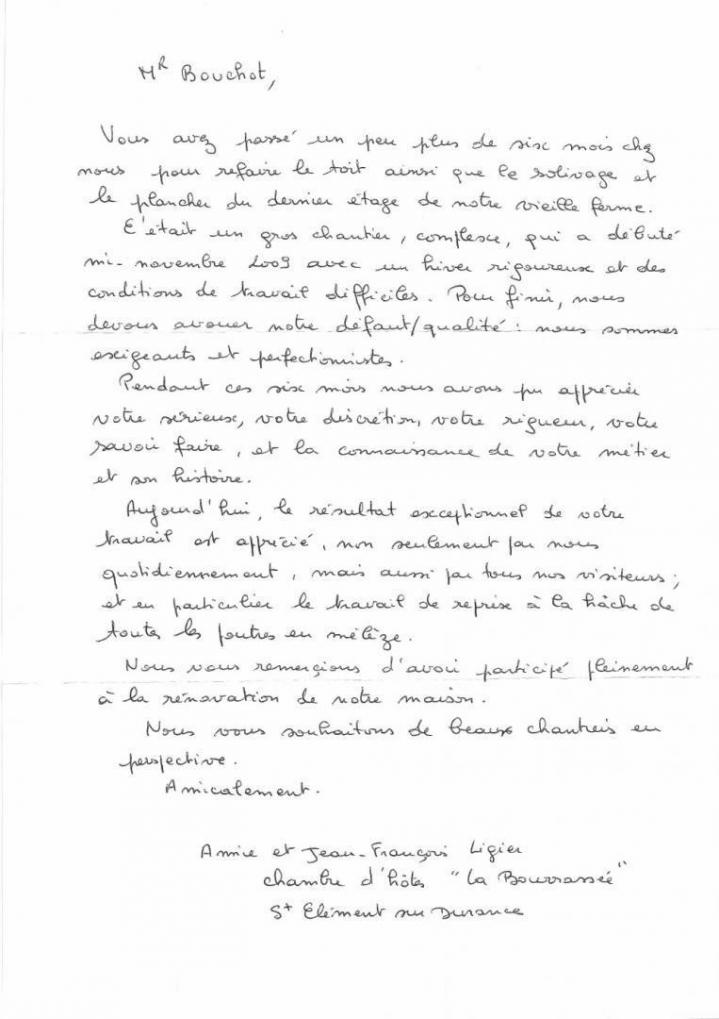 Mr Bouchot,
Vous avez passé un peu plus de six mois chez
nous pour refaire le toit ainsi que le solivage et
le plancher du dernier étage de notre vieille ferme.
C'était un gros chantier, complexe, qui a débuté
mi-novembre 2009 avec un hiver rigoureux et des
conditions de travail difficiles. Pour finir, nous
devons avouer notre défaut/qualité : nous sommes
exigeants et perfectionnistes.
Pendant ces six mois nous avons pu apprécier
votre sérieux, votre discrétion, votre rigueur, votre
savoir faire, et la connaissance de votre métier
et son histoire.
Aujourd'hui, le résultat exceptionnel de votre
travail est apprécié, non seulement par nous
quotidiennement, mais aussi par tous nos visiteurs ;
et en particulier le travail de reprise à la hâche de
toutes les poutres en mélèze.
Nous vous remerçions d'avoir participé pleinement
à la rénovation de notre maison.
Nous vous souhaitons de beaux chantiers en
perspective.
Amicalement.
Annie et Jean-François Ligier
chambre d'hôtes "La Bourrassée"
St Clément sur Durance